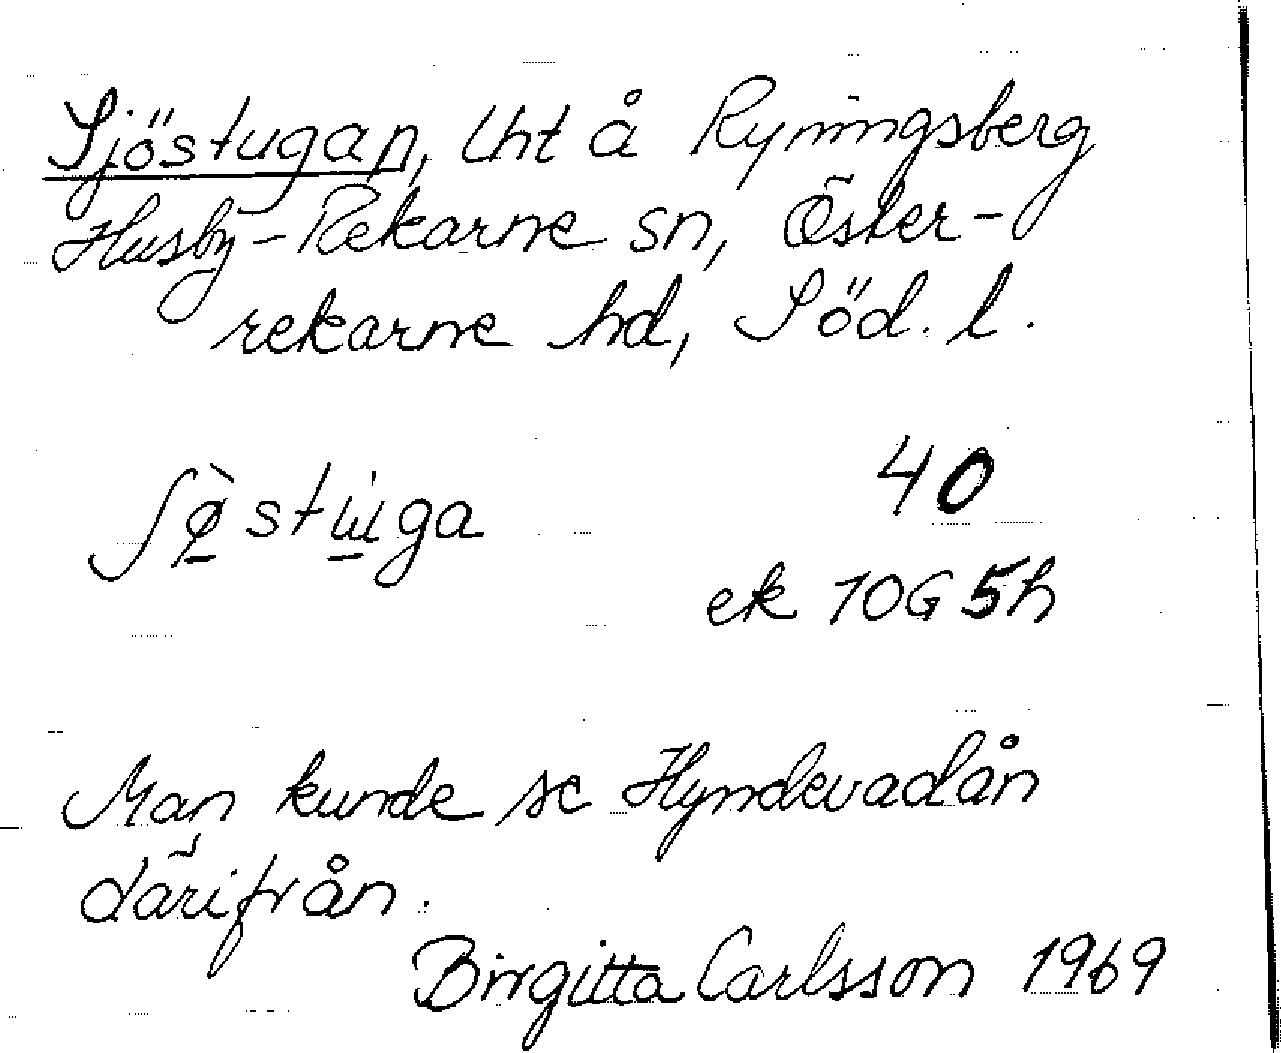 Sjöstugan, Lht å Ryningsberg
Husby-Rekarne sn, Öster-
rekarne hd, Söd. l.
40
ek 10G 5h
Man kunde se Hyndevadån
därifrån.
Birgitta Carlsson 1969